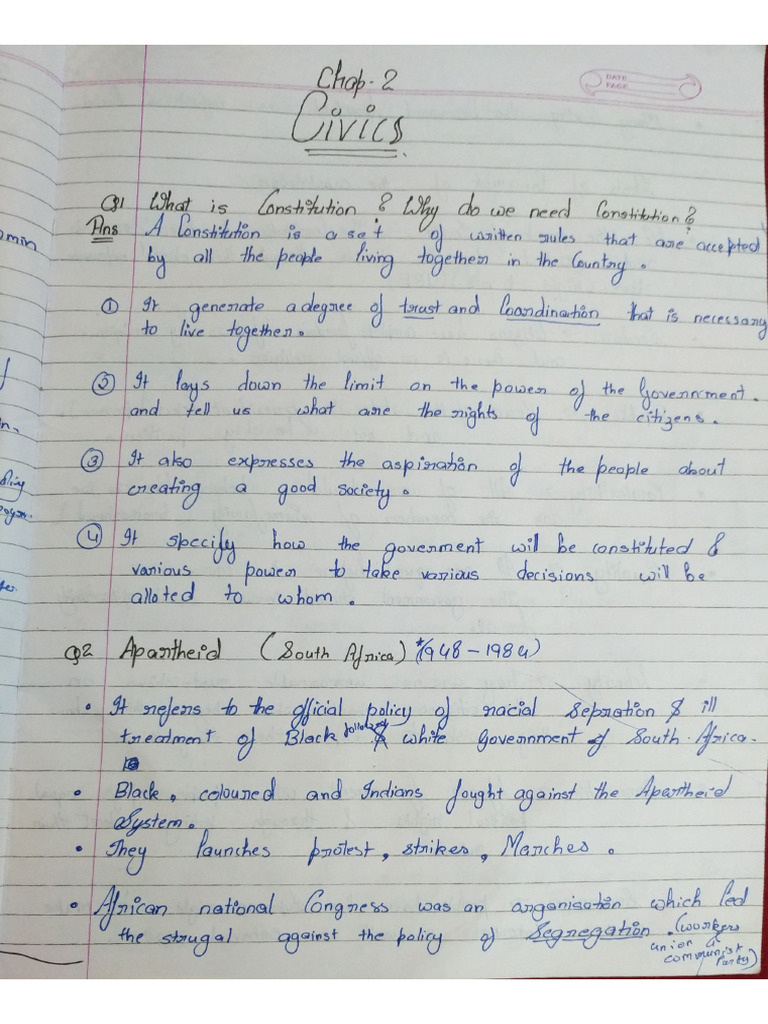 Chap. 2
DATE
PAGE
Civics
Q1 What is Constitution? Why do we need Constitution?
Ans A Constitution is a set of written rules that are accepted
by all the people living together in the Country.
① It generate a degree of trust and Coordination that is necessary
to live together.
② It lays down the limit on the power of the Government.
and tell us what are the rights of the citizens.
③ It also expresses the aspiration of the people about
creating a good society.
④ It specify how the goverment will be constituted &
various power to take various decisions will be
alloted to whom.
Q2 Apartheid (South Africa) *(1948-1984)
• It refers to the official policy of racial Sepration & ill
treatment of Black followed white Government of South Africa.
• Black, coloured and Indians fought against the Apartheid
System.
• They launches protest, strikes, Marches.
• African national Congress was an organisation which led
the strugal against the policy of Segregation. (workers
union &
communist
Party)